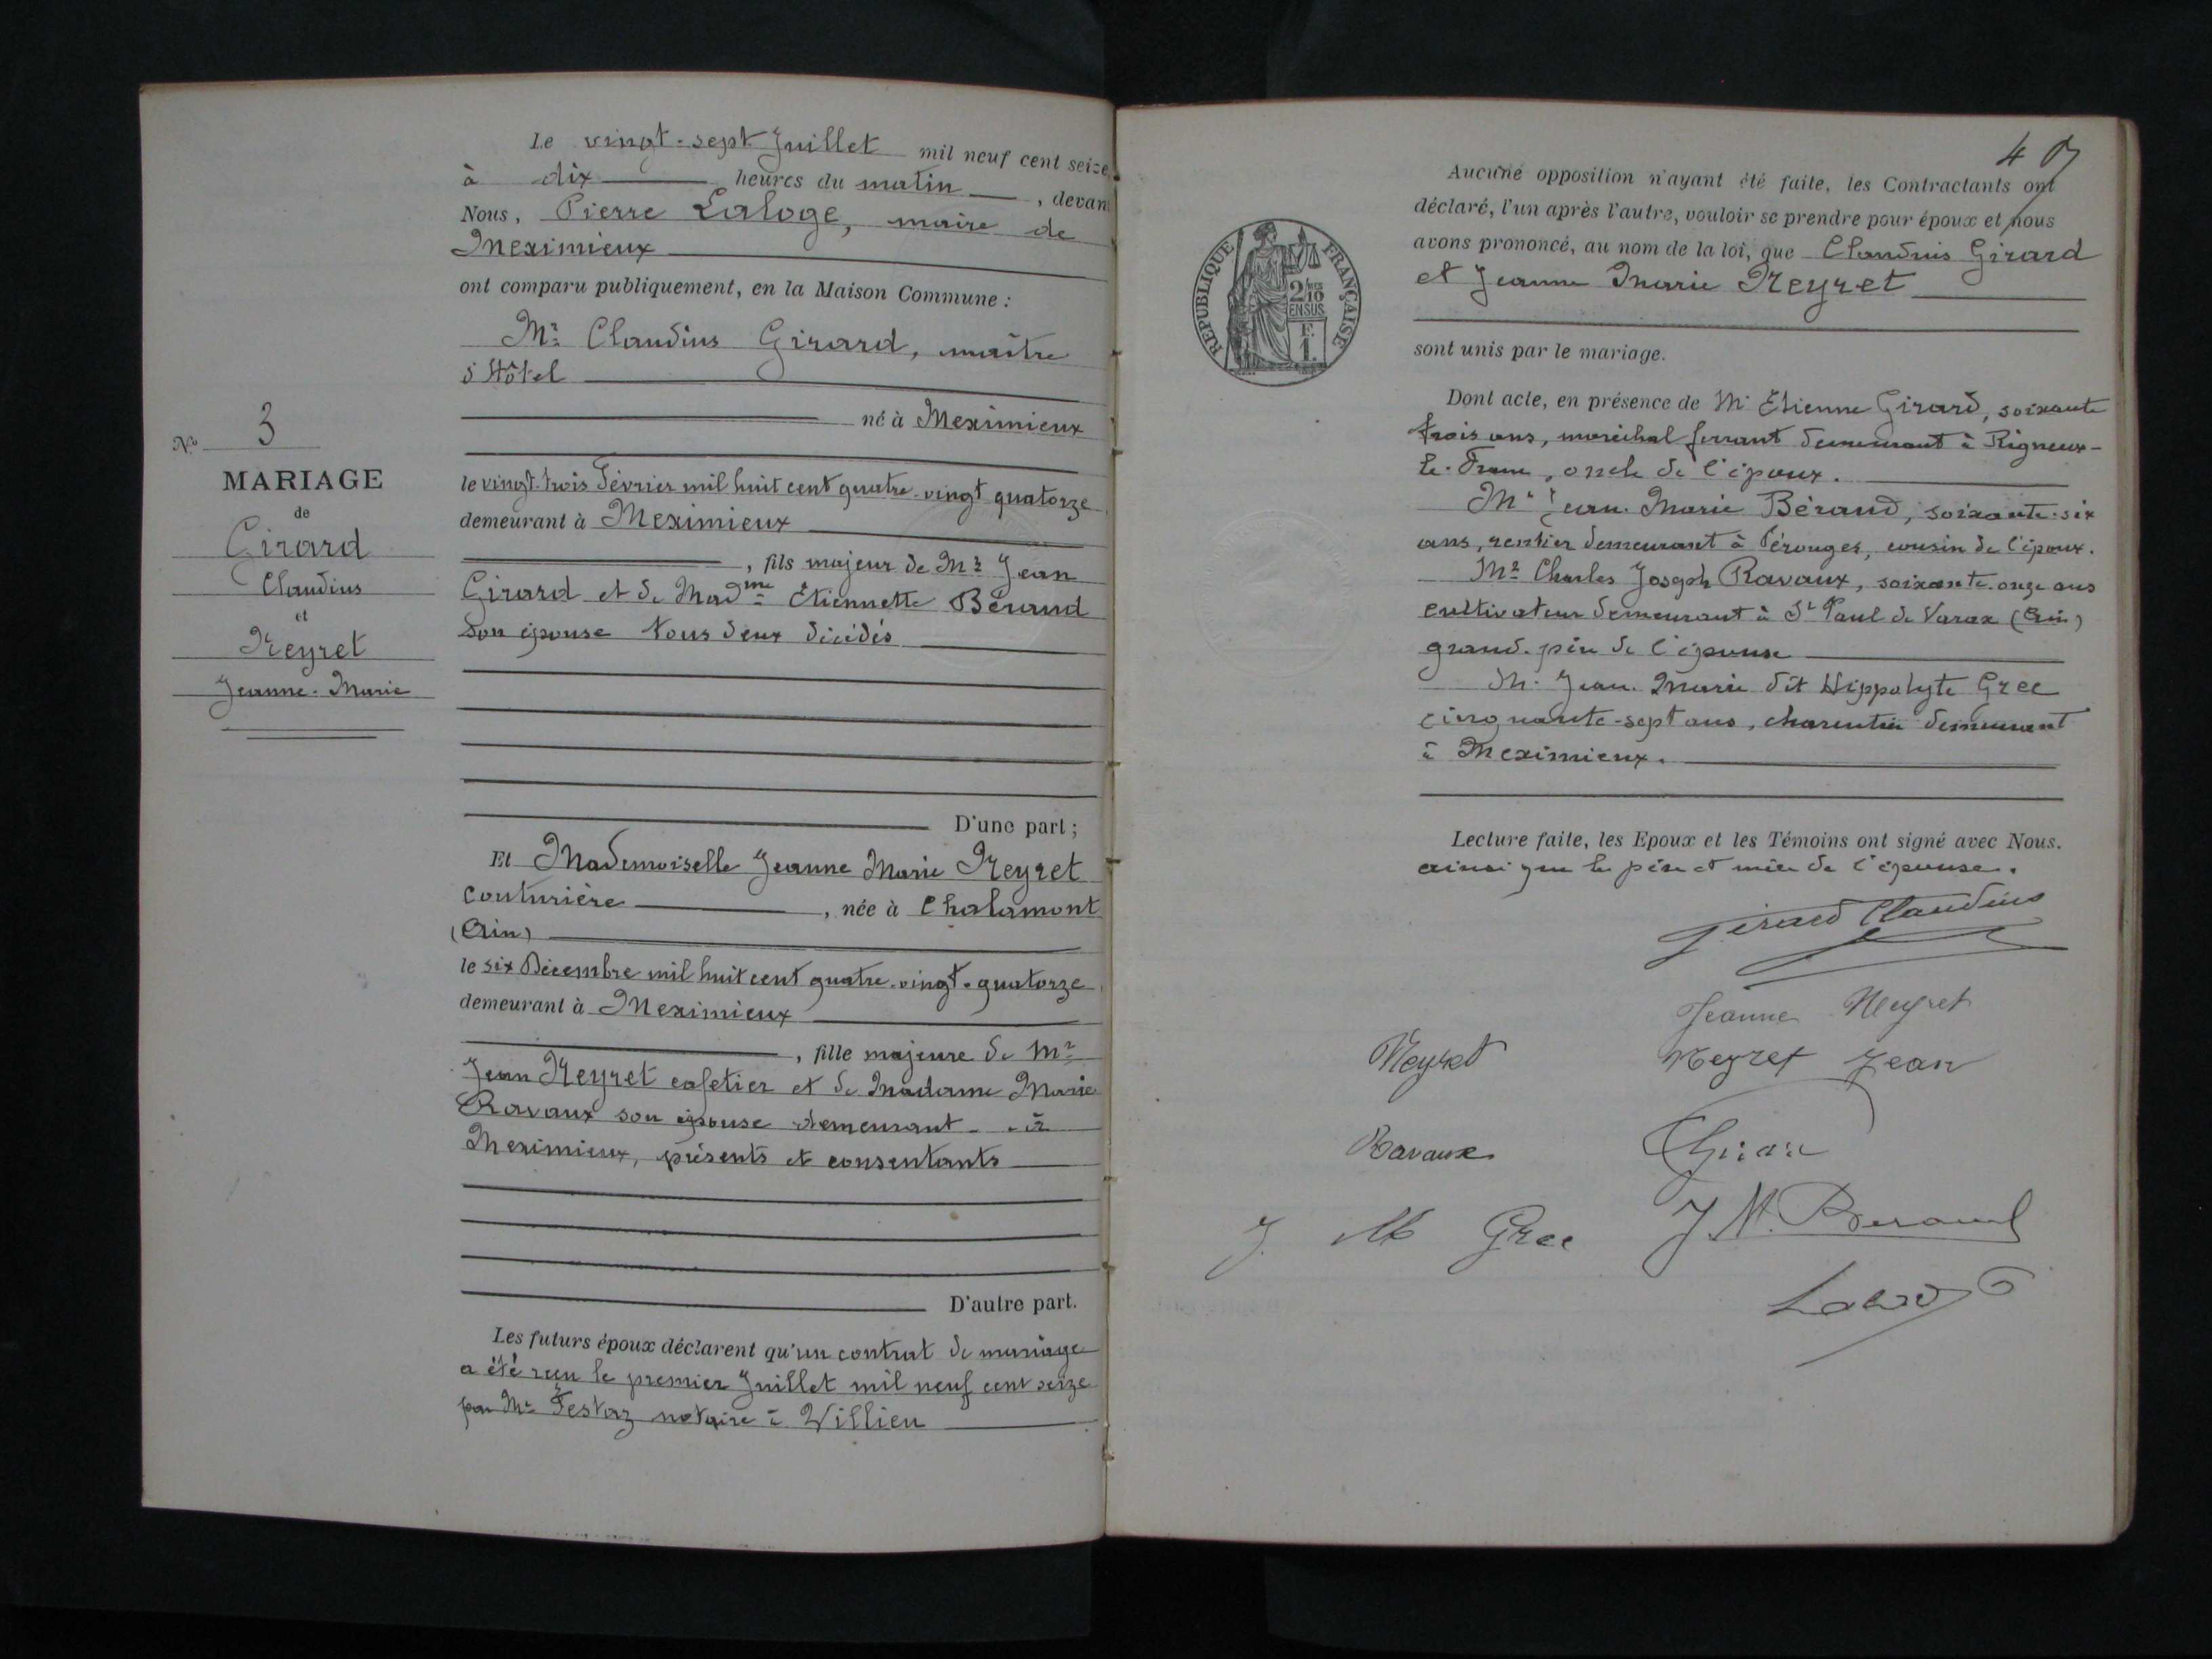 Le vingt-sept Juillet mil neuf cent seize,
à dix heures du matin, devant
Nous, Pierre Laloge, maire de
Meximieux
ont comparu publiquement, en la Maison Commune :
Mr Claudius Girard, maître
d'Hôtel
né à Meximieux
le vingt-trois Février mil huit cent quatre-vingt quatorze
demeurant à Meximieux
, fils majeur de Mr Jean
Girard et de Madme Etiennette Béraud
son épouse tous deux décédés
D'une part ;
No 3
MARIAGE
de
Girard
Claudius
et
Neyret
Jeanne-Marie
Et Mademoiselle Jeanne Marie Neyret
couturière, née à Chalamont
(Ain)
le six Décembre mil huit cent quatre-vingt-quatorze
demeurant à Meximieux
, fille majeure de Mr
Jean Neyret cafetier et de Madame Marie
Ravaux son épouse demeurant à
Meximieux, présents et consentants
D'autre part.
Les futurs époux déclarent qu'un contrat de mariage
a été reçu le premier Juillet mil neuf cent seize
par Me Festaz notaire à Villieu
40
RÉPUBLIQUE FRANÇAISE
2/10
EN SUS
F.
1.
Aucune opposition n'ayant été faite, les Contractants ont
déclaré, l'un après l'autre, vouloir se prendre pour époux et nous
avons prononcé, au nom de la loi, que Claudius Girard
et Jeanne Marie Neyret
sont unis par le mariage.
Dont acte, en présence de Mr Etienne Girard, soixante
trois ans, maréchal ferrant demeurant à Rigneux-
le-Franc, oncle de l'époux.
Mr Jean-Marie Béraud, soixante-six
ans, rentier demeurant à Pérouges, cousin de l'époux.
Mr Charles Joseph Ravaux, soixante-onze ans
cultivateur demeurant à St Paul de Varax (Ain)
grand-père de l'épouse
M. Jean-Marie dit Hippolyte Gree
cinquante-sept ans, charentier demeurant
à Meximieux.
Lecture faite, les Epoux et les Témoins ont signé avec Nous.
ainsi que les père et mère de l'épouse.
Girard Claudius
Jeanne Neyret
Neyret
Neyret Jean
Ravaux
J. M Gree
J M. Beraud